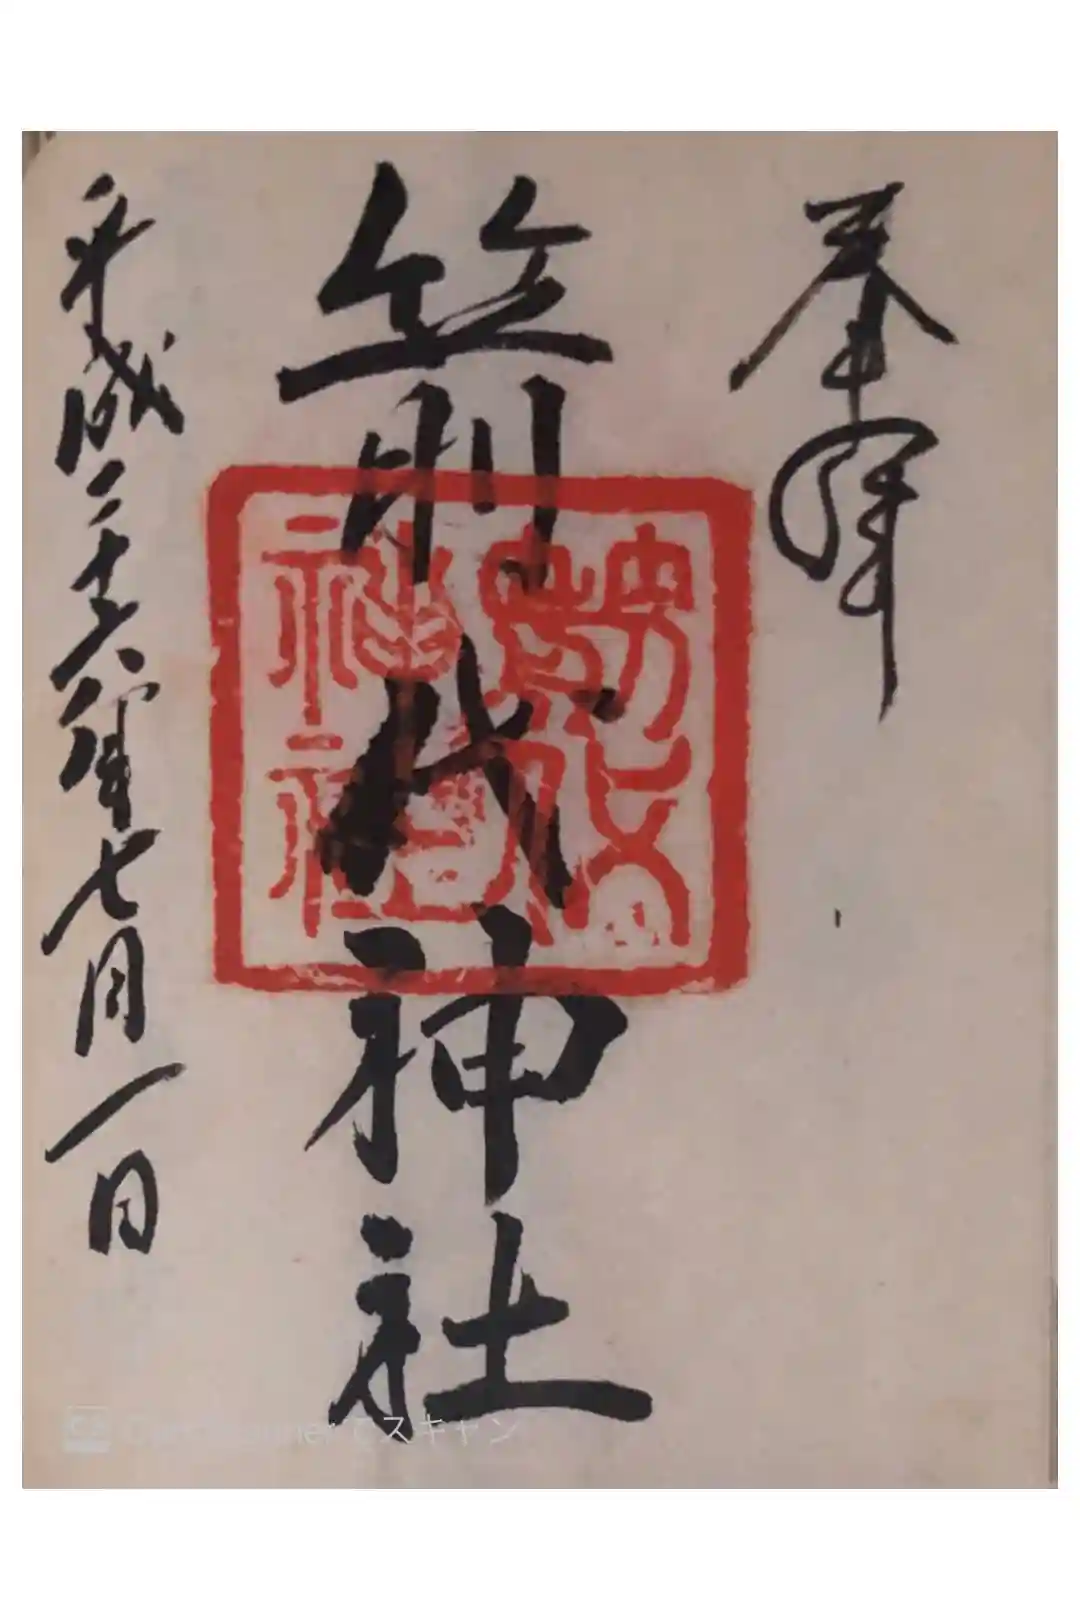 奉拝
箭代神社
平成二十六年七月一日
CS CamScannerでスキャン